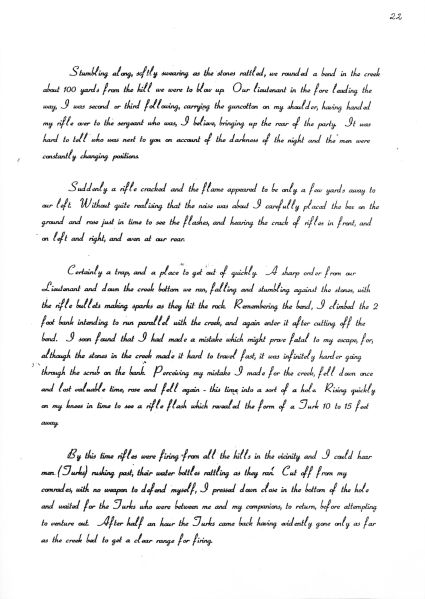 22
Stumbling along, softly swearing as the stones rattled, we rounded a bend in the creek
about 100 yards from the hill we were to blow up. Our lieutenant in the fore leading the
way, I was second or third following, carrying the guncotton on my shoulder, having handed
my rifle over to the sergeant who was, I believe, bringing up the rear of the party. It was
hard to tell who was next to you on account of the darkness of the night and the men were
constantly changing positions.
Suddenly a rifle cracked and the flame appeared to be only a few yards away to
our left. Without quite realizing what the noise was about I carefully placed the box on the
ground and rose just in time to see the flashes, and hearing the crack of rifles in front, and
on left and right, and even at our rear.
Certainly a trap, and a place to get out of quickly. A sharp order from our
Lieutenant and down the creek bottom we ran, falling and stumbling against the stones, with
the rifle bullets making sparks as they hit the rock. Remembering the bend, I climbed the 2
foot bank intending to run parallel with the creek, and again enter it after cutting off the
bend. I soon found that I had made a mistake which might prove fatal to my escape, for,
although the stones in the creek made it hard to travel fast, it was infinitely harder going
through the scrub on the bank. Perceiving my mistake I made for the creek, fell down once
and lost valuable time, rose and fell again - this time into a sort of a hole. Rising quickly
on my knees in time to see a rifle flash which revealed the form of a Turk 10 to 15 feet
away.
By this time rifles were firing from all the hills in the vicinity and I could hear
men (Turks) rushing past, their water bottles rattling as they ran. Cut off from my
comrades, with no weapon to defend myself, I pressed down close in the bottom of the hole
and waited for the Turks who were between me and my companions, to return, before attempting
to venture out. After half an hour the Turks came back having evidently gone only as far
as the creek bed to get a clear range for firing.